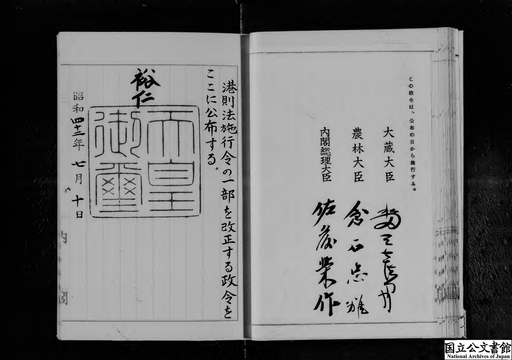 港則法施行令の一部を改正する政令を
ここに公布する。
裕仁
天皇御璽
昭和四十三年七月十日
内閣
この政令は、公布の日から施行する。
大蔵大臣
農林大臣 倉石忠雄
内閣総理大臣 佐藤栄作
国立公文書館
National Archives of Japan